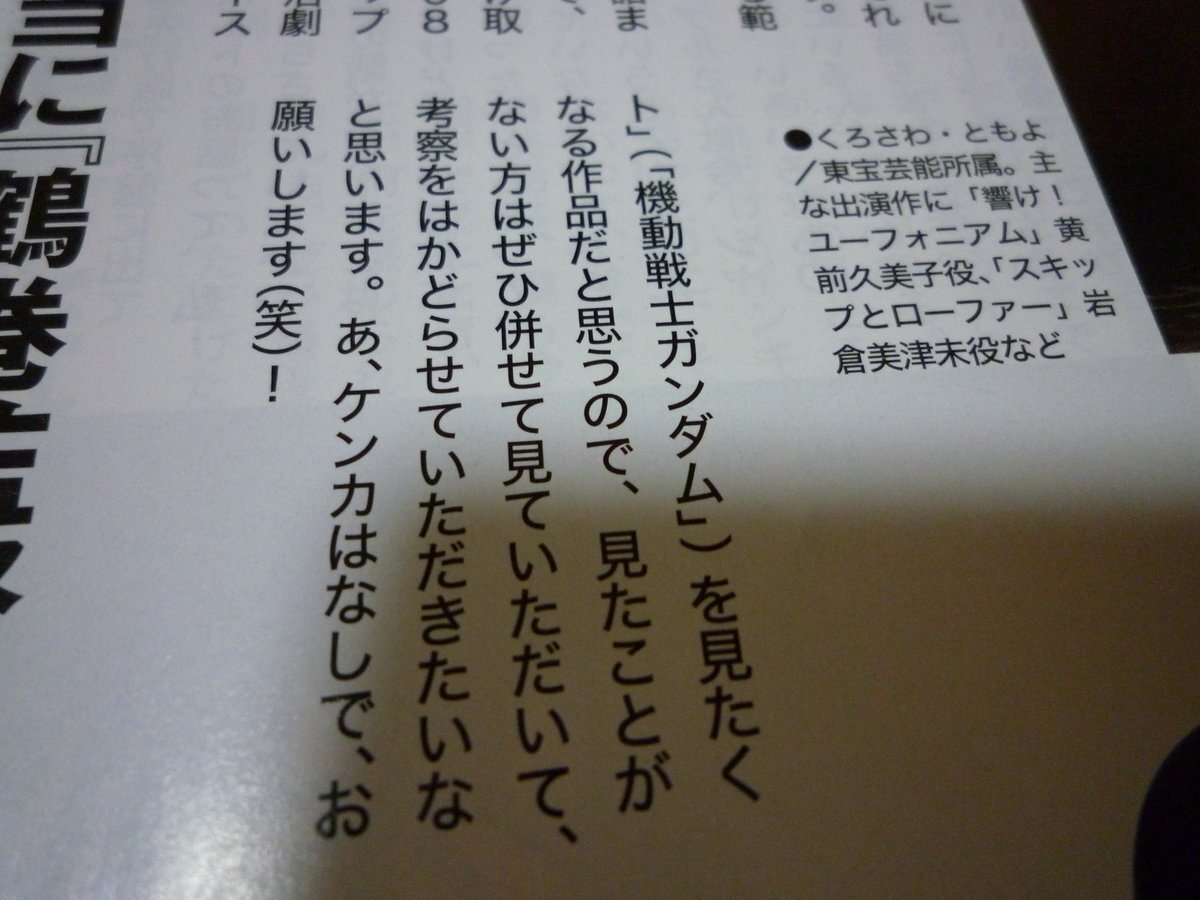 ●くろさわ・ともよ
/東宝芸能所属。主
な出演作に「響け!
ユーフォニアム」黄
前久美子役、「スキッ
プとローファー」岩
倉美津未役など
ト」(「機動戦士ガンダム」)を見たく
なる作品だと思うので、見たことが
ない方はぜひ併せて見ていただいて、
考察をはかどらせていただきたいな
と思います。あ、ケンカはなしで、お
願いします(笑)!
に『鶴巻
に
れ
。
範
ま
、
取
8
プ
劇
ス